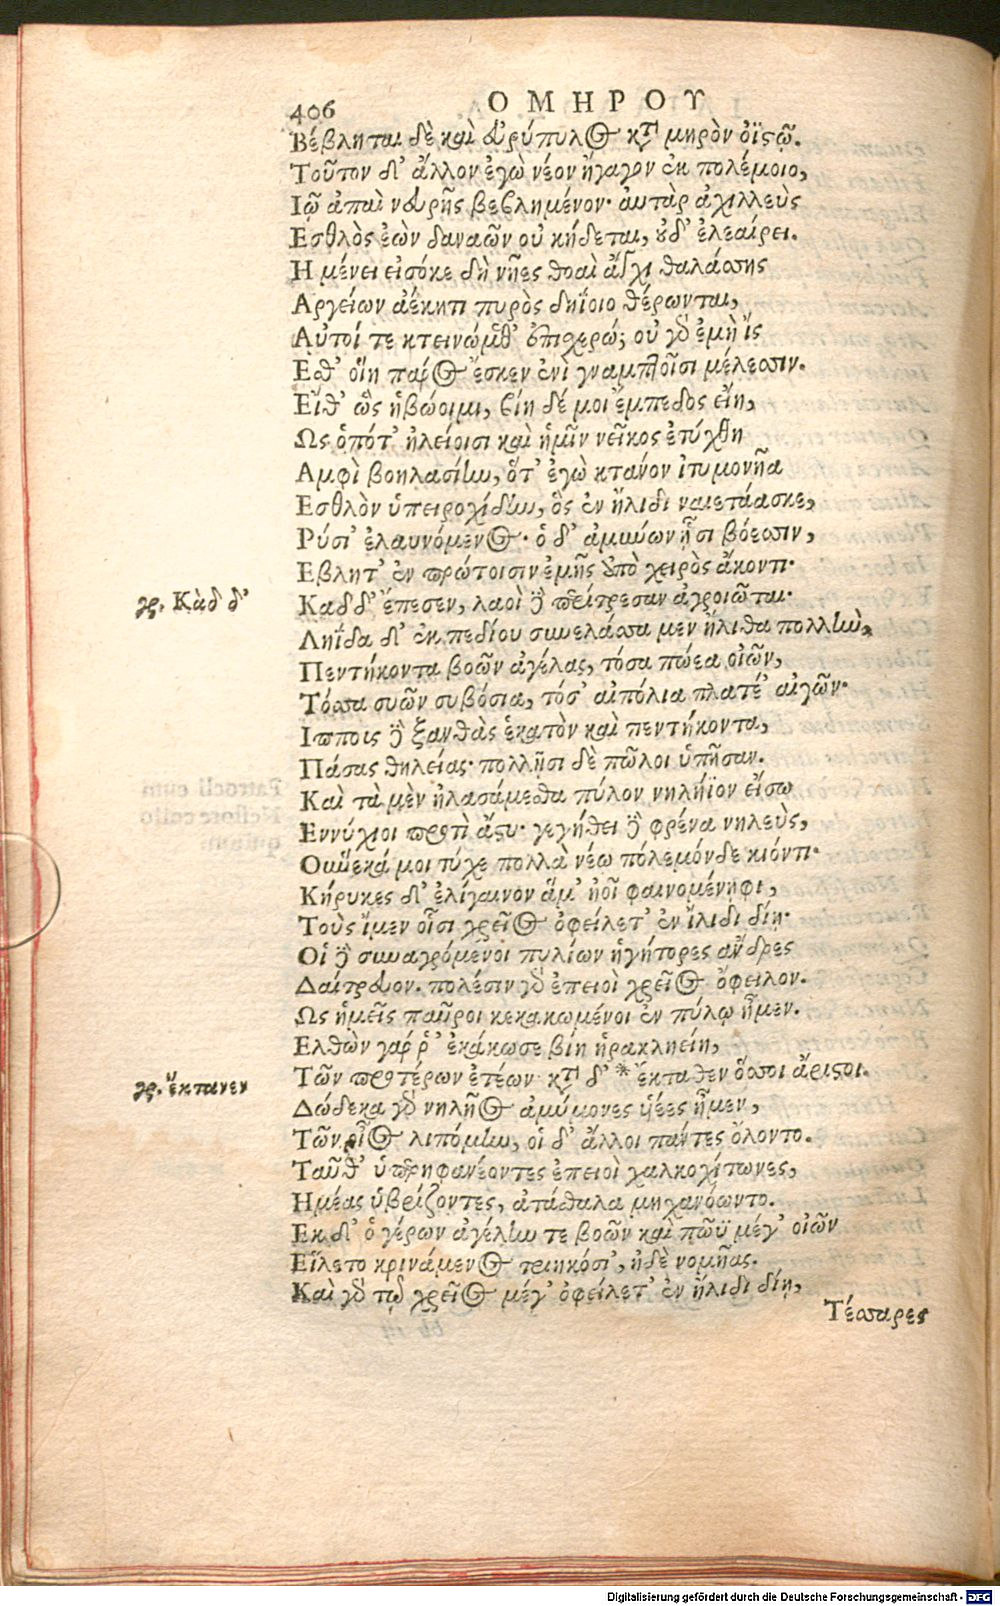 406 ΟΜΗΡΟΥ
Βέβληται δὲ καὶ εὐρύπυλος κατὰ μηρὸν οἴστῳ.
Τοῦτον δ' ἄλλον ἐγὼ νέον ἤγαγον ἐκ πολέμοιο,
Ιῷ ἀπαὶ νευρῆς βεβλημένον· αὐτὰρ ἀχιλλεὺς
Εσθλὸς ἐὼν δαναῶν οὐ κήδεται, οὐδ' ἐλεαίρει.
Η μένει εἰσόκε δὴ νῆες θοαὶ ἄγχι θαλάσσης
Αργείων ἀέκητι πυρὸς δηΐοιο θέρωνται,
Αὐτοί τε κτεινώμεθ' ἐπιχερώ; οὐ γὰρ ἐμὴ ἲς
Εσθ' οἵη πάρος ἔσκεν ἐνὶ γναμπτοῖσι μέλεσσιν.
Εἴθ' ὣς ἡβώοιμι, βίη δέ μοι ἔμπεδος εἴη,
Ως ὁπότ' ἠλείοισι καὶ ἡμῖν νεῖκος ἐτύχθη
Αμφὶ βοηλασίην, ὅτ' ἐγὼ κτάνον ἰτυμονῆα
Εσθλὸν ὑπειροχίδην, ὃς ἐν ἤλιδι ναιετάασκε,
Ρύσι' ἐλαυνόμενος· ὁ δ' ἀμύνων ᾗσι βόεσσιν,
Εβλητ' ἐν πρώτοισιν ἐμῆς ὑπὸ χειρὸς ἄκοντι·
γρ. Κὰδ δ'
Καδ δ' ἔπεσεν, λαοὶ δὲ περίτρεσαν ἀγροιῶται·
Ληΐδα δ' ἐκ πεδίου συνελάσσα μεν ἤλιθα πολλὴν,
Πεντήκοντα βοῶν ἀγέλας, τόσα πώεα οἰῶν,
Τόσσα συῶν συβόσια, τόσ' αἰπόλια πλατέ' αἰγῶν·
Ιπποις δὲ ξανθὰς ἑκατὸν καὶ πεντήκοντα,
Πάσας θηλείας· πολλῇσι δὲ πῶλοι ὑπῆσαν.
Καὶ τὰ μὲν ἠλασάμεσθα πύλον νηλήϊον εἴσω
Εννύχιοι προτὶ ἄστυ· γεγήθει δὲ φρένα νηλεὺς,
Οὕνεκά μοι τύχε πολλὰ νέῳ πόλεμόνδε κιόντι·
Κήρυκες δ' ἐλίγαινον ἅμ' ἠοῖ φαινομένηφι,
Τοὺς ἴμεν οἷσι χρεῖος ὀφείλετ' ἐν ἤλιδι δίῃ·
Οἱ δὲ συναγρόμενοι πυλίων ἡγήτορες ἄνδρες
Δαίτρευον. πολέσιν γὰρ ἐπειοὶ χρεῖος ὄφειλον.
Ως ἡμεῖς παῦροι κεκακωμένοι ἐν πύλῳ ἦμεν.
Ελθὼν γάρ ῥ' ἐκάκωσε βίη ἡρακληείη,
γρ. ἔκτανεν
Τῶν προτέρων ἐτέων· κατὰ δ' * ἔκταθεν ὅσσοι ἄριστοι.
Δώδεκα γὰρ νηλῆος ἀμύμονες υἱέες ἦμεν,
Τῶν οἶος λιπόμην, οἱ δ' ἄλλοι πάντες ὄλοντο.
Ταῦθ' ὑπερηφανέοντες ἐπειοὶ χαλκοχίτωνες,
Ημέας ὑβρίζοντες, ἀτάσθαλα μηχανόωντο.
Εκ δ' ὁ γέρων ἀγέλην τε βοῶν καὶ πῶϋ μέγ' οἰῶν
Εἵλετο κρινάμενος τριηκόσι', ἠδὲ νομῆας.
Καὶ γὰρ τῷ χρεῖος μέγ' ὀφείλετ' ἐν ἤλιδι δίῃ,
Τέσσαρες
Digitalisierung gefördert durch die Deutsche Forschungsgemeinschaft - DFG